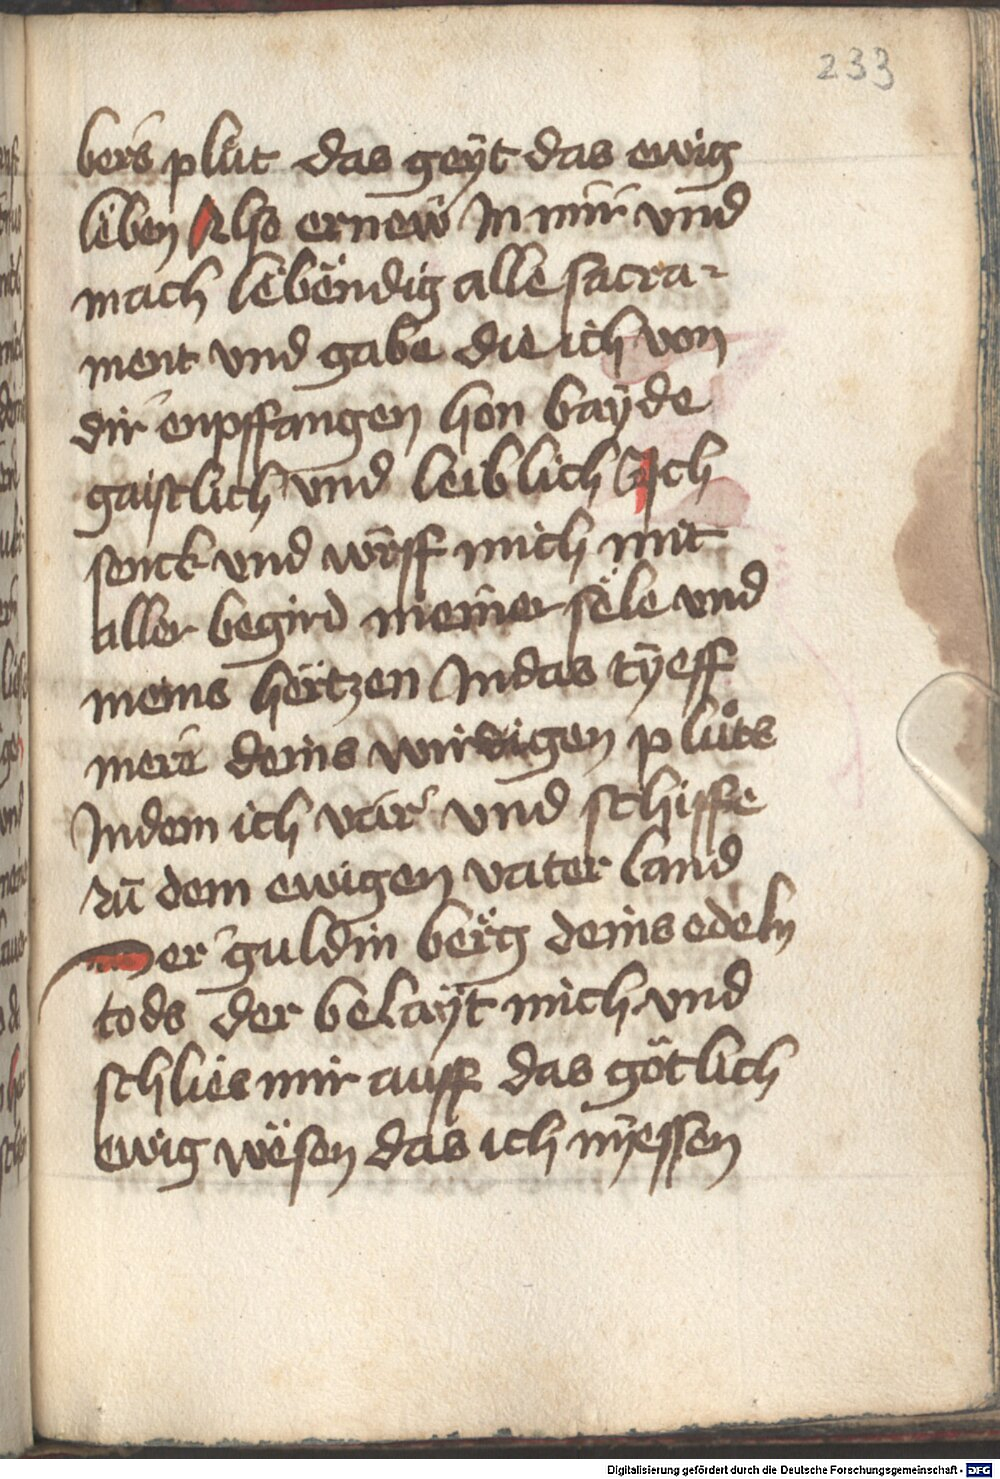 233
bers plůt das geÿt das ewig
leben Also ernew In mir vnd
mach lebendig alle sacra-
ment vnd gabe die ich von
dir enpffangen hon baÿde
gaistlich vnd leiblich Ich
senck vnd wirff mich mit
aller begird meiner sele vnd
meins hertzen Indas tÿeff
mere deins wirdigen plůts
Indem ich var vnd schiffe
zů dem ewigen vater land
Der guldin berg deins edeln
tods der belaÿt mich vnd
schlies mir auff das götlich
ewig wesen das ich nÿessen
Digitalisierung gefördert durch die Deutsche Forschungsgemeinschaft - DFG